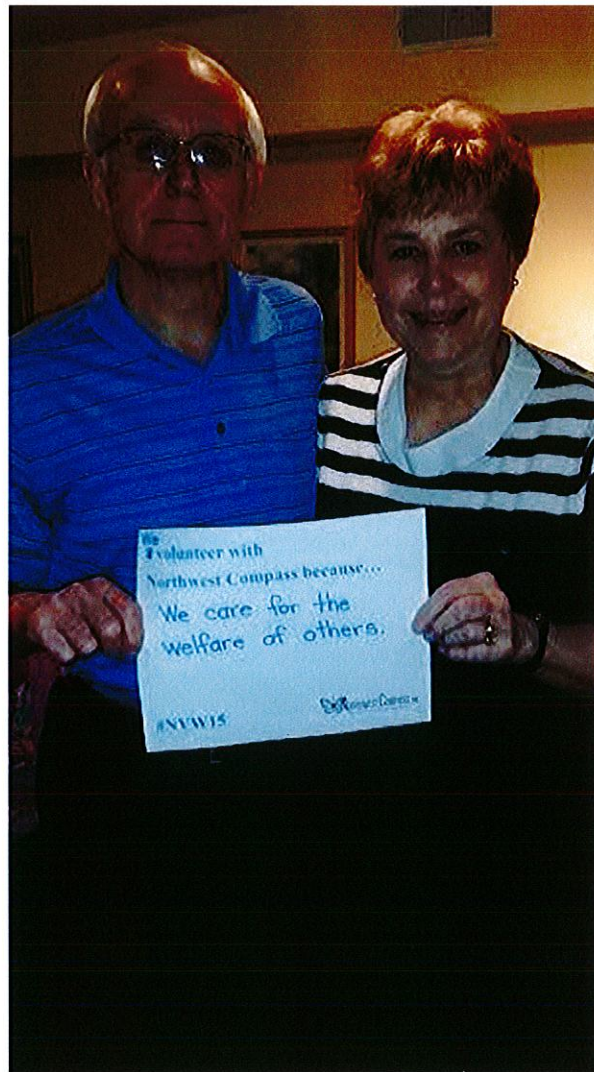 We
I volunteer with
Northwest Compass because...
We care for the
welfare of others.
#NVW15
Northwest Compass